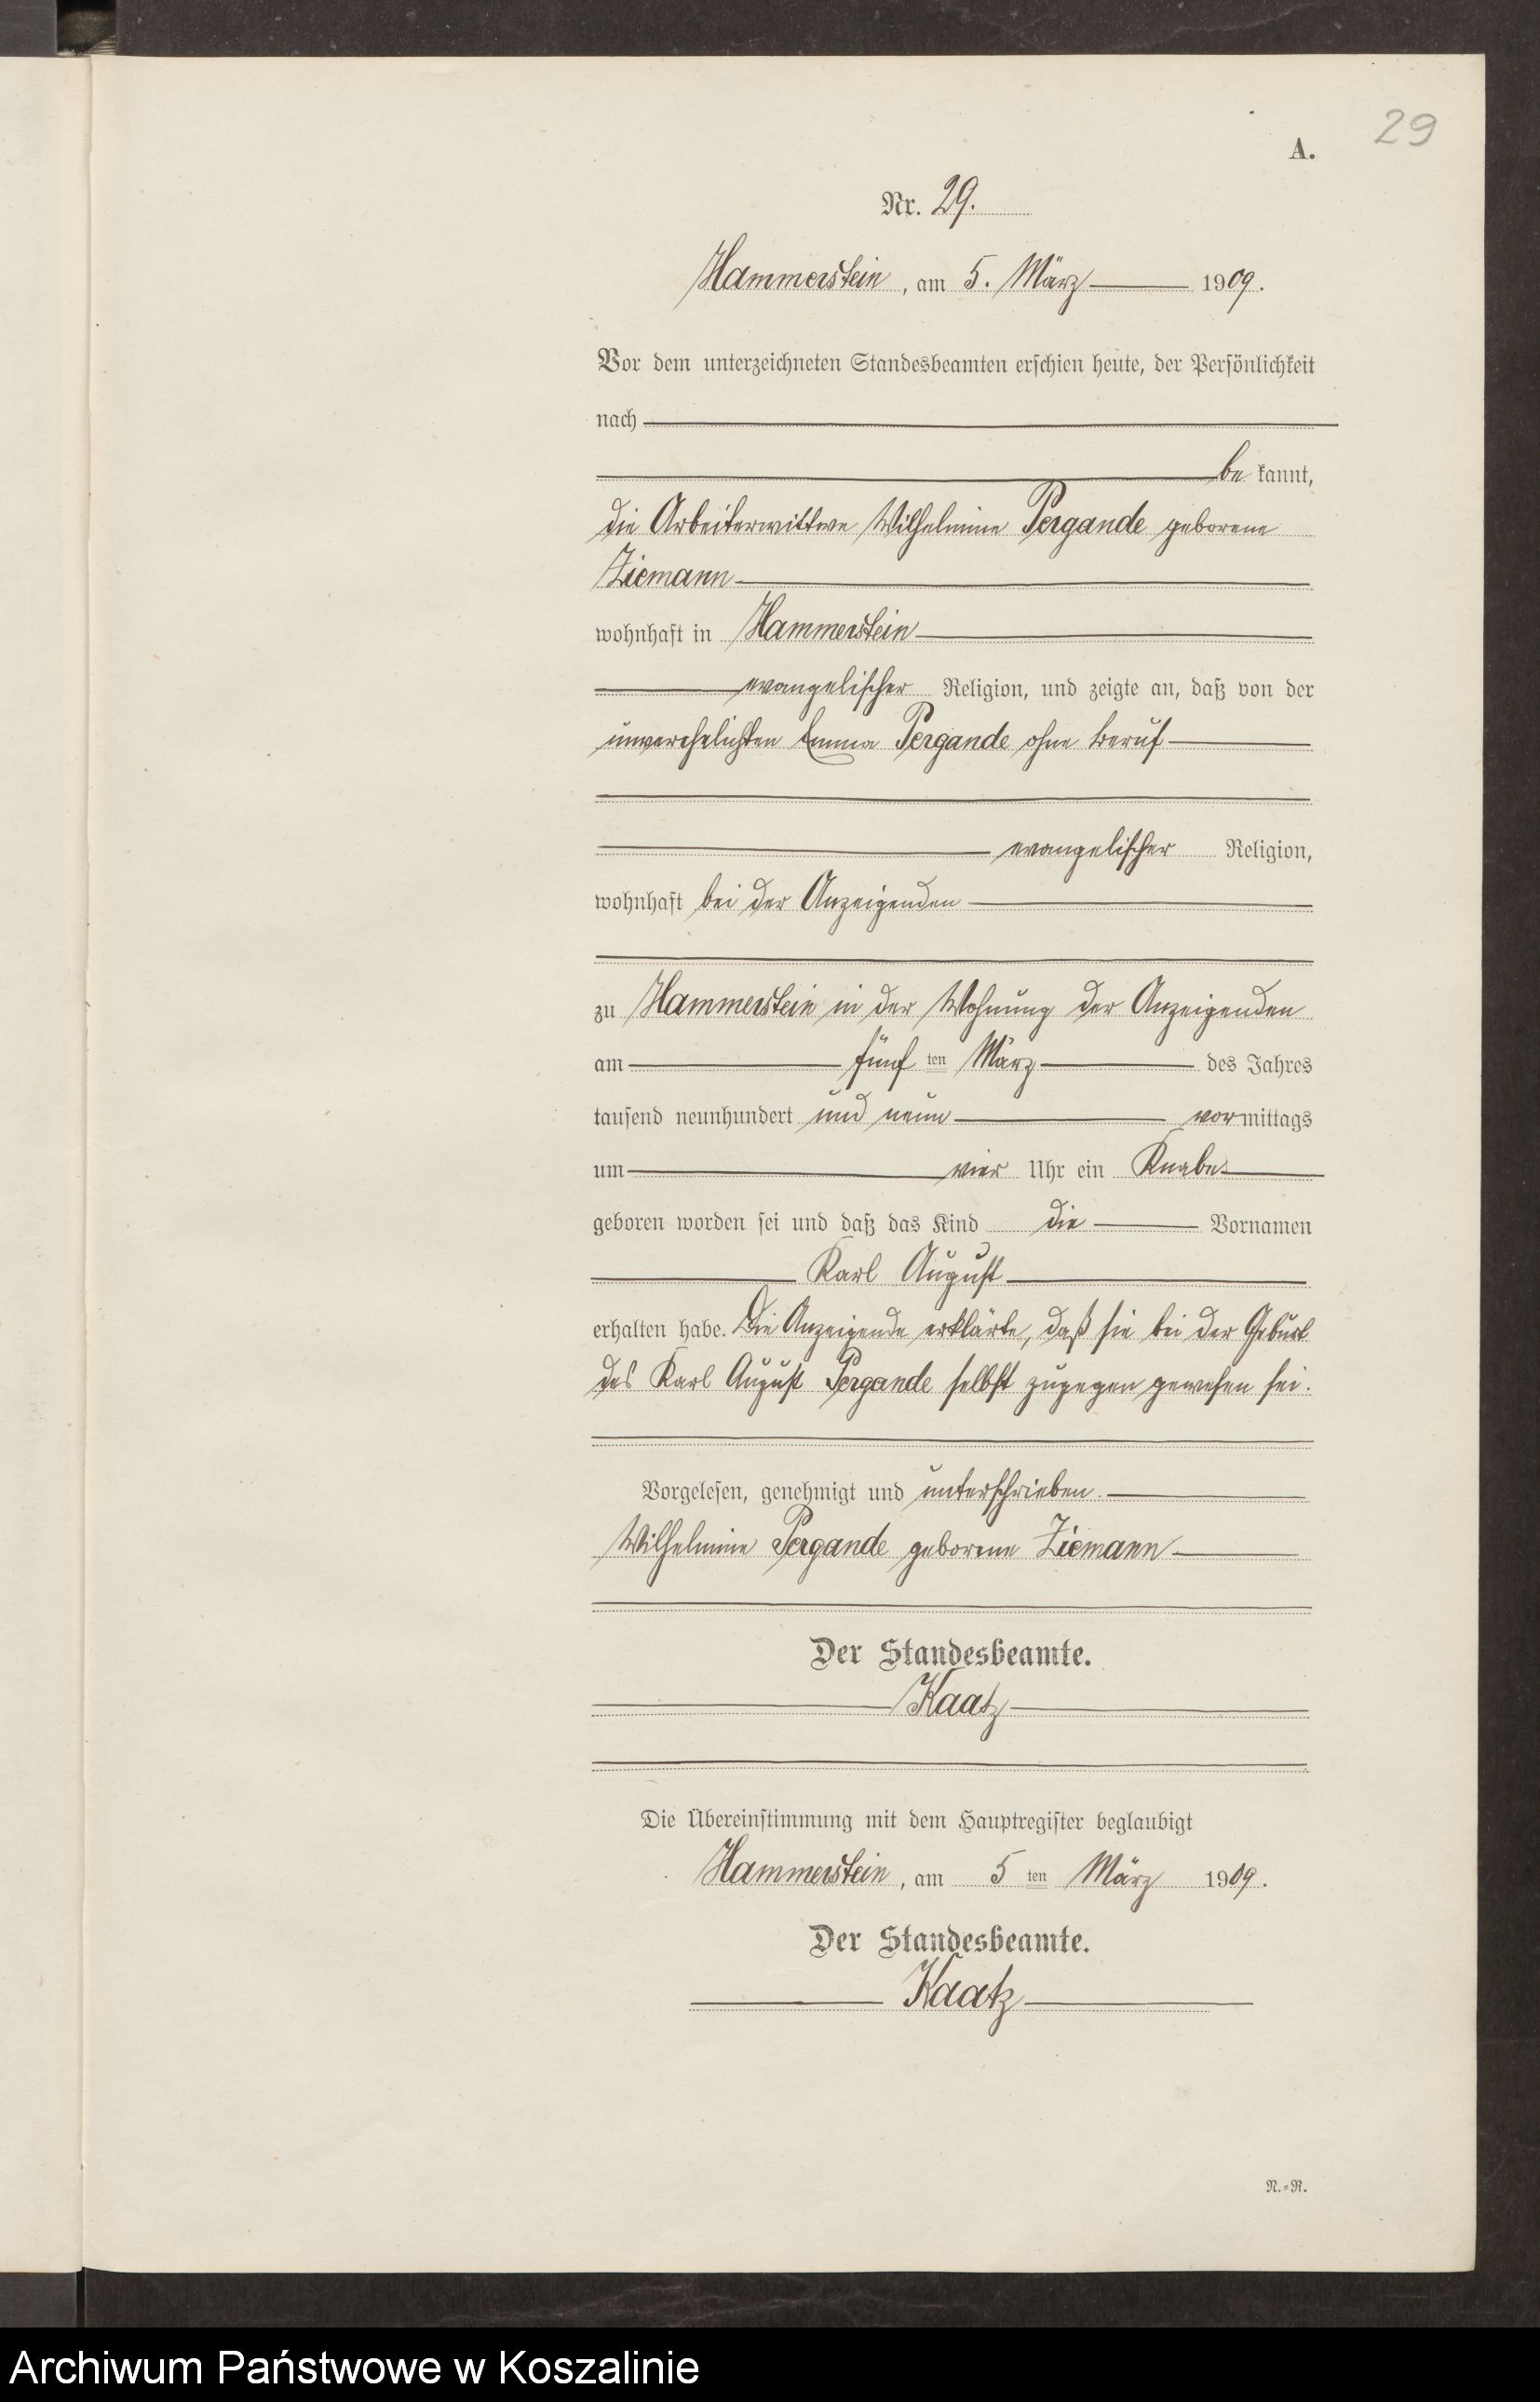 29
A.
Nr. 29.
Hammerstein, am 5. März 1909.
Vor dem unterzeichneten Standesbeamten erschien heute, der Persönlichkeit
nach
be kannt,
die Arbeiterwittwe Wilhelmine Pergande geborene
Ziemann
wohnhaft in Hammerstein
evangelischer Religion, und zeigte an, daß von der
unverehelichten Emma Pergande ohne Beruf
evangelischer Religion,
wohnhaft bei der Anzeigenden
zu Hammerstein in der Wohnung der Anzeigenden
am fünf ten März des Jahres
tausend neunhundert und neun vormittags
um vier Uhr ein Knabe
geboren worden sei und daß das Kind die Vornamen
Karl August
erhalten habe. Die Anzeigende erklärte, daß sie bei der Geburt
des Karl August Pergande selbst zugegen gewesen sei.
Vorgelesen, genehmigt und unterschrieben.
Wilhelmine Pergande geborene Ziemann
Der Standesbeamte.
Kaatz
Die Übereinstimmung mit dem Hauptregister beglaubigt
Hammerstein, am 5 ten März 1909.
Der Standesbeamte.
Kaatz
N.=R.
Archiwum Państwowe w Koszalinie